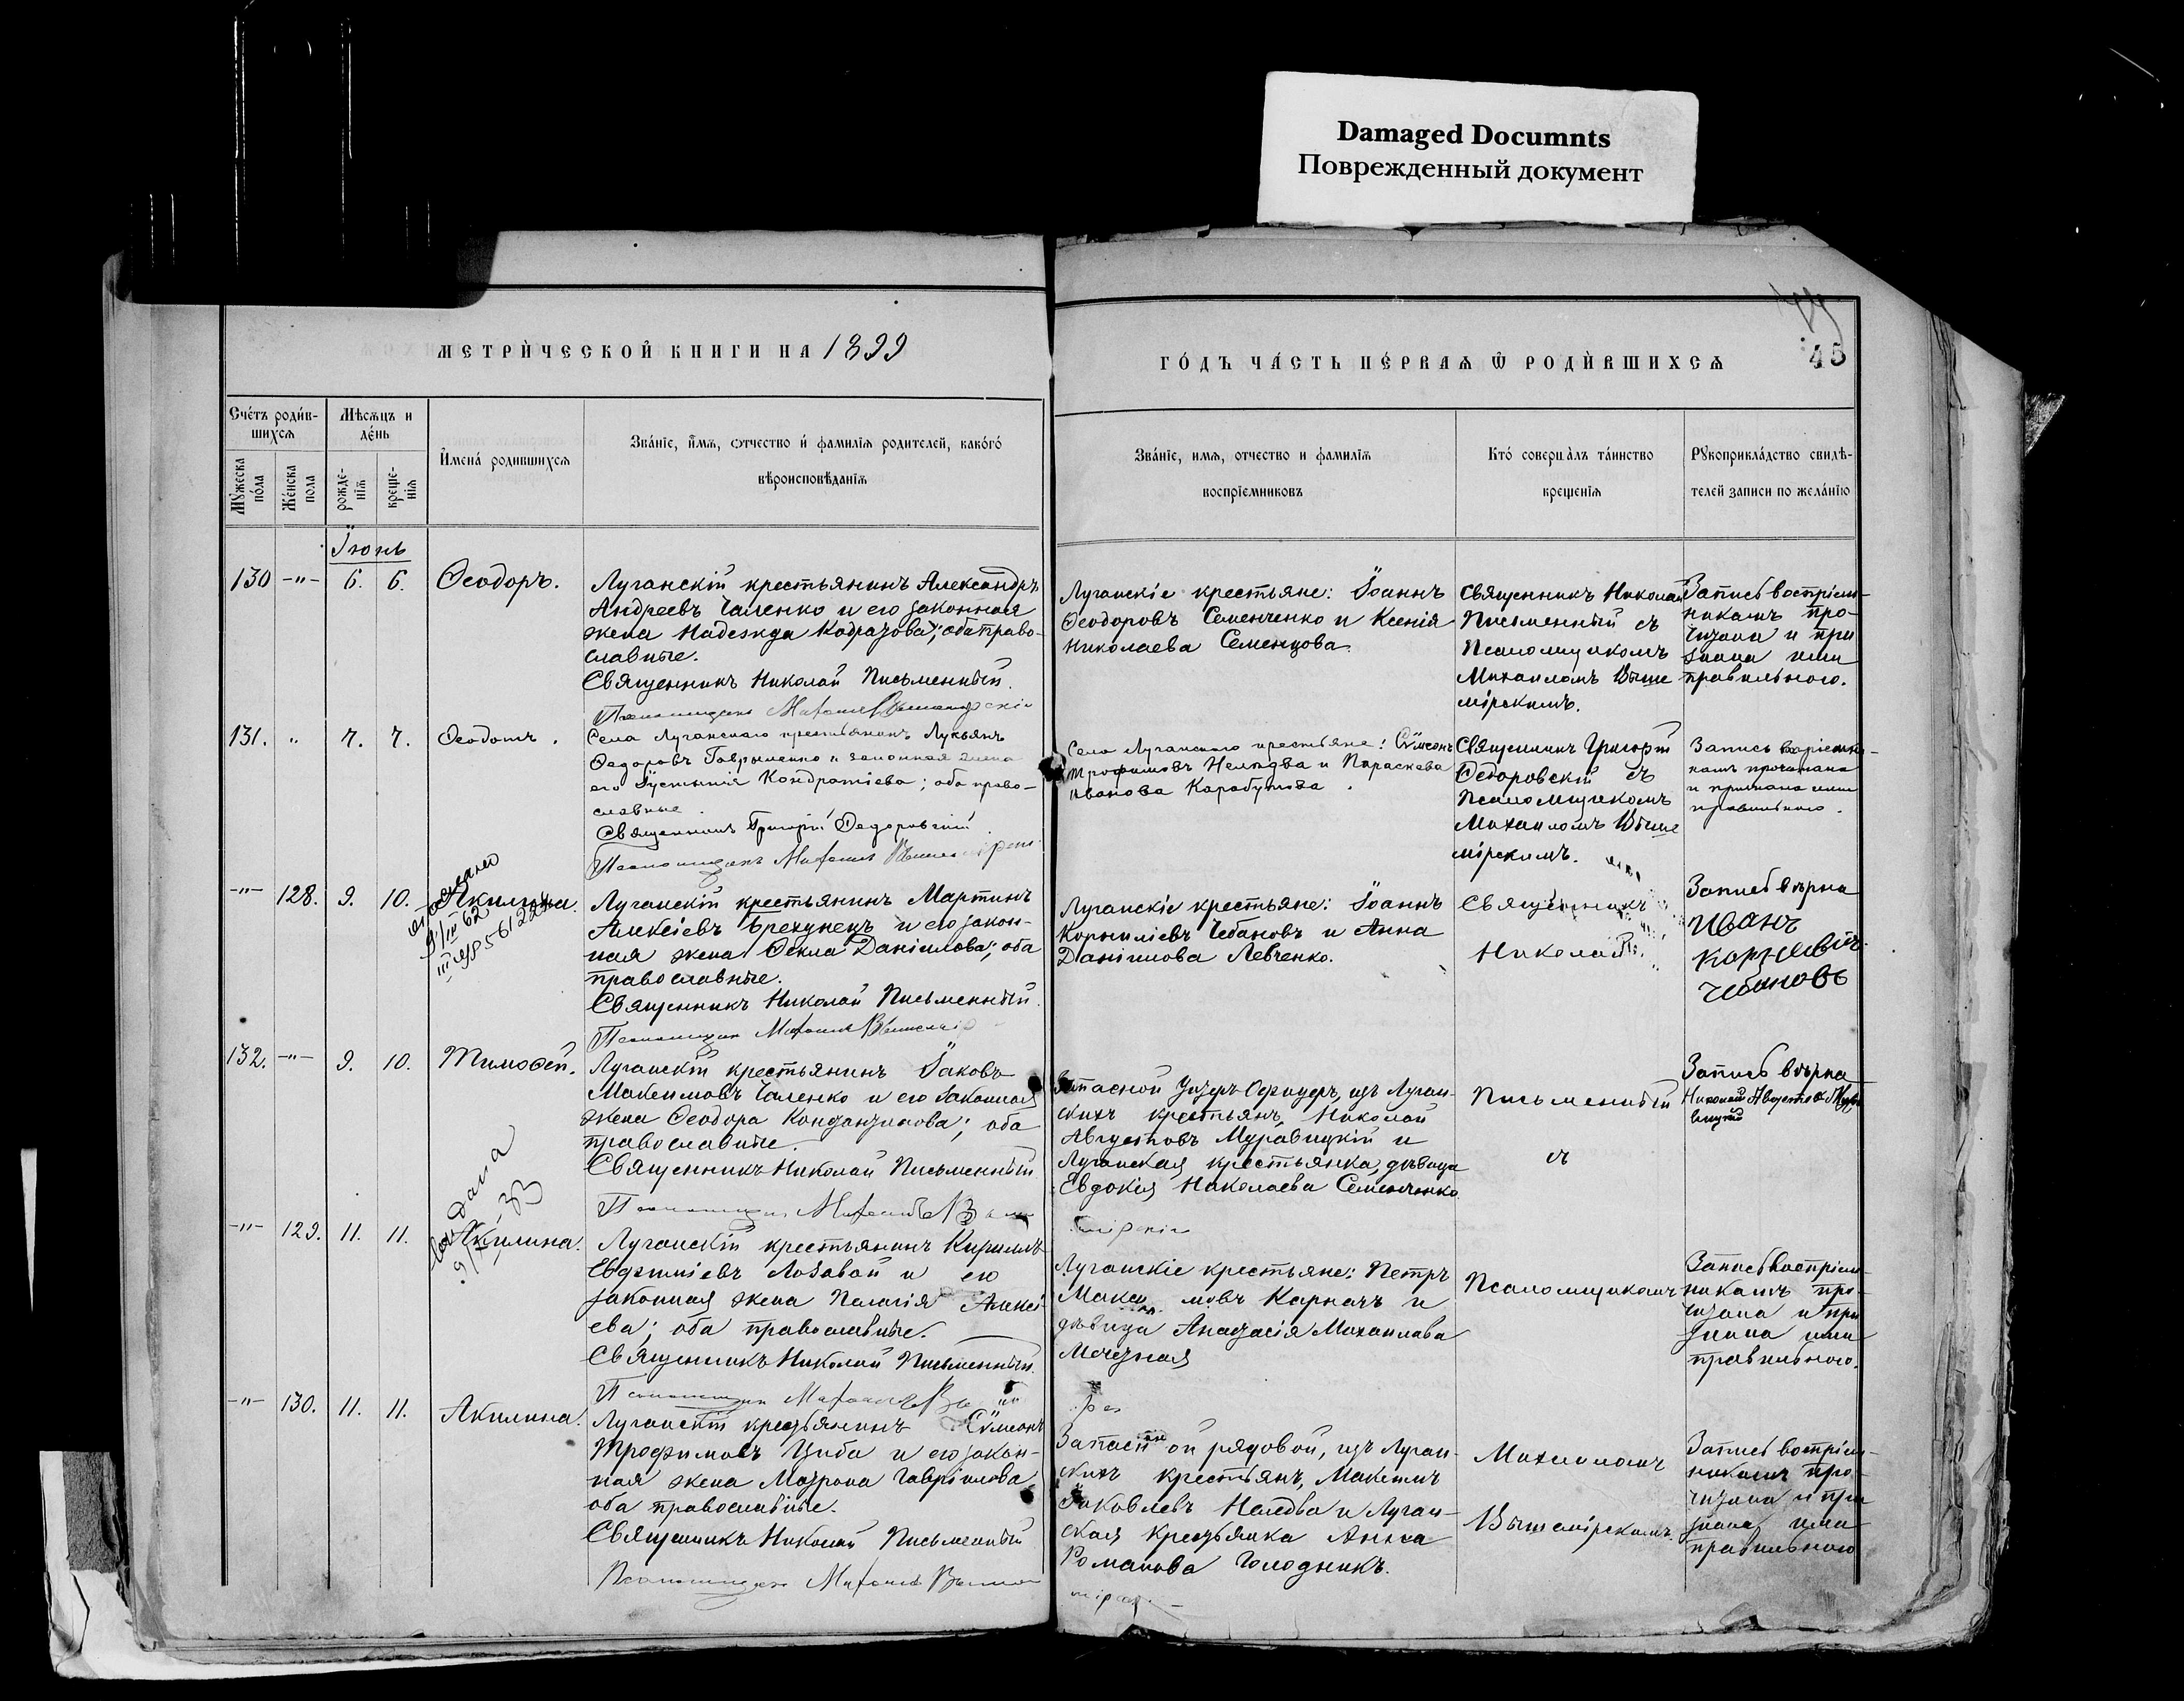 Damaged Documnts
Поврежденный документ
МЕТРИЧЕСКОЙ КНИГИ НА 1899
ГОДЪ ЧАСТЬ ПЕРВАѦ Ѿ РОДИВШИХСѦ
45
Счетъ родив-
шихсѧ
Мѣсѧцъ и
день
Мужеска
пола
Женска
пола
рожде-
ніѧ
креще-
ніѧ
Имена родившихсѧ
Званіе, имѧ, отчество и фамиліѧ родителей, какого
вѣроисповѣданіѧ
Званіе, имѧ, отчество и фамиліѧ
воспріемниковъ
Кто совершалъ таинство
крещеніѧ
Рукоприкладство свидѣ-
телей записи по желанію
Іюнь
130 -"- 6. 6. Ѳеодоръ.
Луганскій крестьянинъ Александръ
Андреевъ Чаленко и его законная
жена Надежда Кодратова; оба право-
славные.
Священникъ Николай Письменный.
Псаломщикъ Михаилъ Вышемірскій
Луганскіе крестьяне: Іоаннъ
Ѳеодоровъ Семенченко и Ксенія
Николаева Семенцова
Священникъ Николай
Письменный съ
Псаломщикомъ
Михаиломъ Выше
мірскимъ.
Запись воспріем-
никамъ про-
читана и при
знана ими
правильною.
131. " 7. 7. Ѳеодотъ.
Села Луганскаго крестьянинъ Лукьянъ
Ѳедоровъ Гавриленко и законная жена
его Іустинія Кондратіева; оба право-
славные.
Священникъ Григорій Ѳедоровскій.
Псаломщикъ Михаилъ
Села Луганскаго крестьяне: Сѷмеонъ
Трофимовъ Неледва и Параскева
Иванова Карабутова.
Священникъ Григорій
Ѳедоровскій съ
Псаломщикомъ
Михаиломъ Выше
мірскимъ.
Запись воспріемни-
камъ прочитана
и признана ими
правильною.
-"- 128. 9. 10. Акилина.
9/III 62
Луганскій крестьянинъ Мартинъ
Алексіевъ Брехунецъ и его закон-
ная жена Ѳекла Даніилова; оба
православные.
Священникъ Николай Письменный.
Псаломщикъ Михаилъ
Луганскіе крестьяне: Іоаннъ
Корниліевъ Чебановъ и Анна
Даніилова Левченко.
Священникъ
Николай
Запись вѣрна
Иванъ
Чебановъ
132. -"- 9. 10. Тимоѳей.
Луганскій крестьянинъ Іаковъ
Максимовъ Чаленко и его законная
жена Ѳеодора Конданзинова; оба
православные.
Священникъ Николай Письменный
Псаломщикъ Михаилъ
Запасной Унтеръ-Офицеръ, изъ Луган-
скихъ крестьянъ, Николай
Августовъ Муравицкій и
Луганская крестьянка, дѣвица
Евдокія Николаева Семенченко
Письменный
съ
Запись вѣрна
Николай
-"- 129. 11. 11. Акилина.
Луганскій крестьянинъ Кириллъ
Евфиміевъ Лозавой и его
законная жена Пелагія Алексі-
ева; оба православные.
Священникъ Николай Письменный.
Псаломщикъ Михаилъ
Луганскіе крестьяне: Петръ
Макси мовъ Карначъ и
дѣвица Анастасія Михаилова
Мечетная
Псаломщикомъ
Запись воспріем-
никамъ про-
читана и при
знана ими
правильною.
-"- 130. 11. 11. Акилина.
Луганскій крестьянинъ Сѷмеонъ
Трофимовъ Циба и его закон-
ная жена Матрона Гавріилова,
оба православные.
Священникъ Николай Письменный
Псаломщикъ Михаилъ
Запасной рядовой, изъ Луган-
скихъ крестьянъ, Максимъ
Іаковлевъ Неледва и Луган-
ская крестьянка Анна
Романова Голодникъ.
Михаиломъ
Вышемірскимъ.
Запись воспріем-
никамъ про-
читана и при
знана ими
правильною